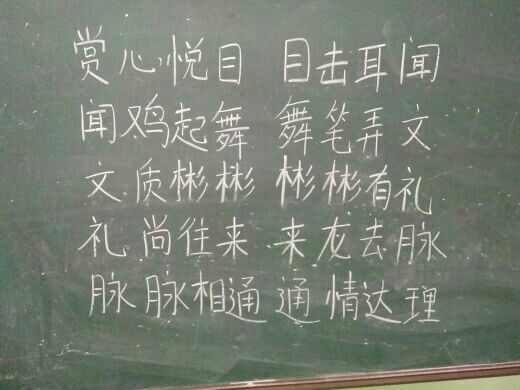 赏心悦目 目击耳闻
闻鸡起舞 舞笔弄文
文质彬彬 彬彬有礼
礼尚往来 来龙去脉
脉脉相通 通情达理